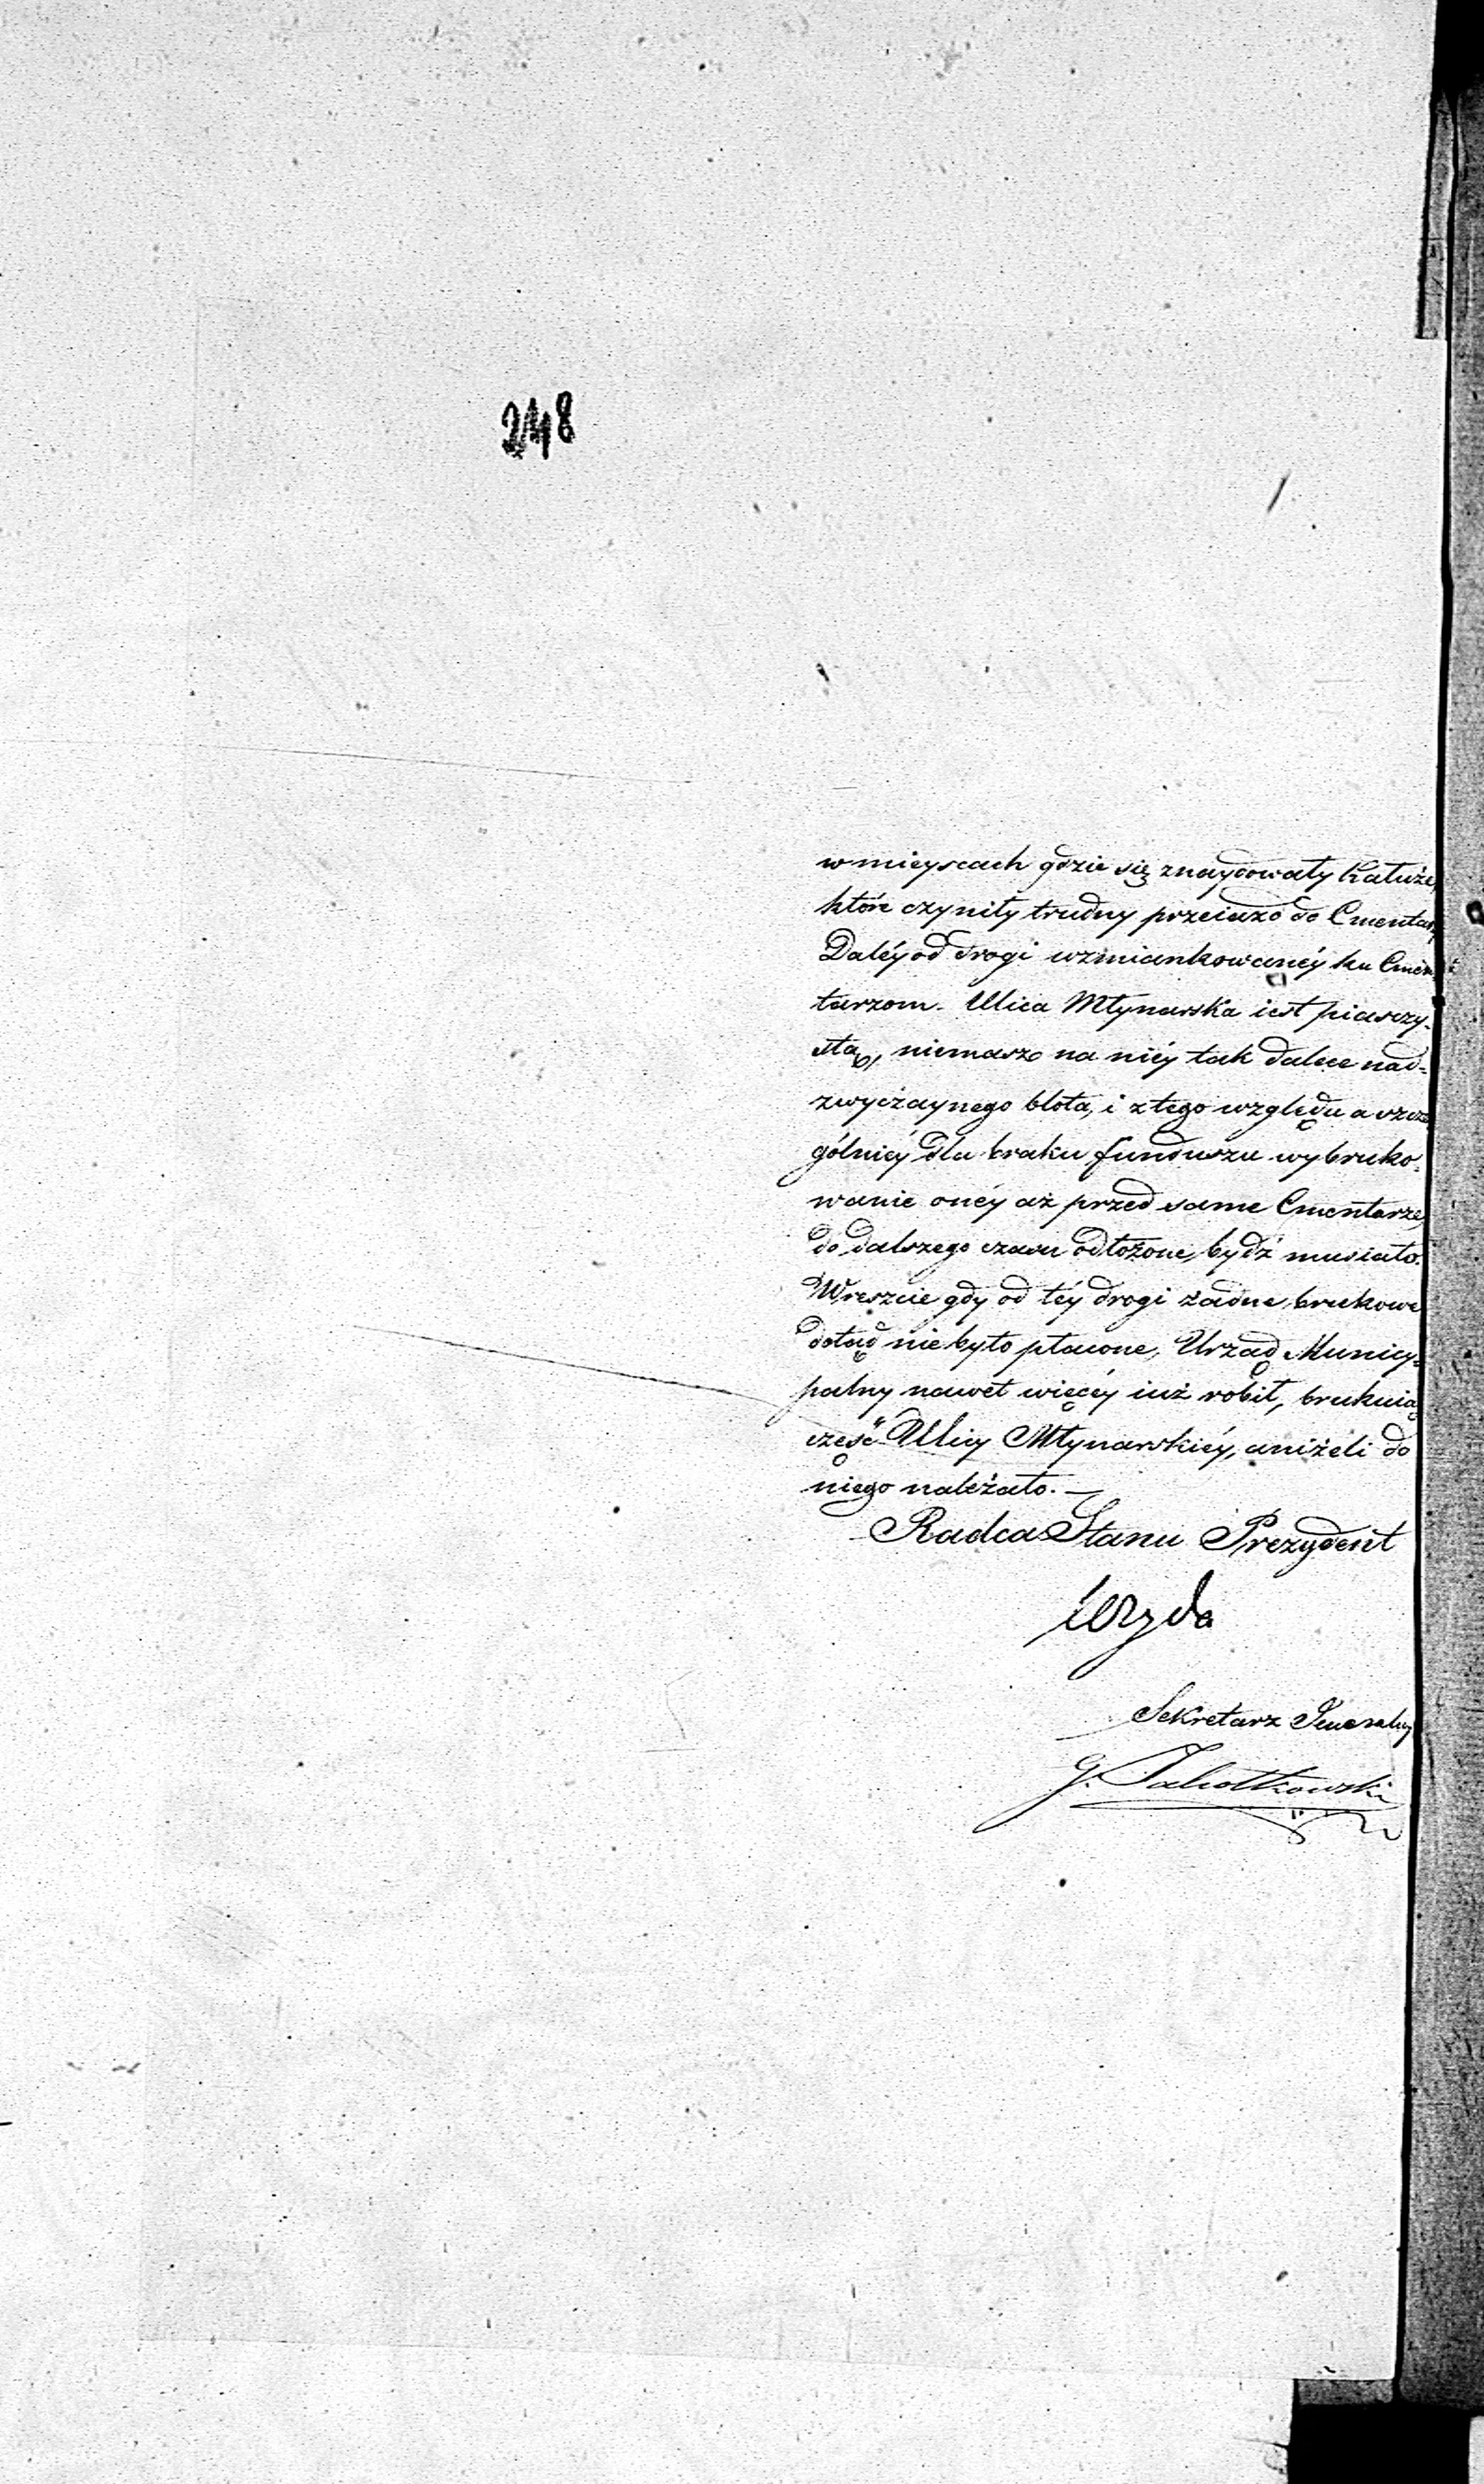 248
w mieyscach gdzie się znaydowały kałuże,
które czyniły trudny przeiazd do Cmentar
Daléy od drogi wzmiankowanéy ku Cmen
tarzom. Ulica Młynarska iest piasczy-
sta, niemasz na niéy tak dalece nad-
zwyczaynego błota, i z tego względu a szcze
gólniéy dla braku funduszu wybruko-
wanie onéy aż przed same Cmentarze,
do dalszego czasu odłożone, bydź musiało.
Wreszcie gdy od téy drogi żadne brukowe
dotąd nie było płacone, Urząd Municy-
palny nawet więcéy iuż robił, brukuiąc
część Ulicy Młynarskiéy, aniżeli do
niego należało. —
Radca Stanu Prezydent
Woyda
Sekretarz Generalny
G. Jahołkowski